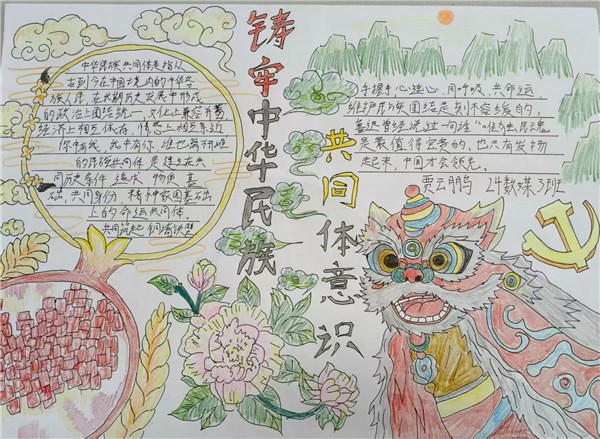 铸牢中华民族
共同体意识
中华民族共同体是指从
古到今在中国境内的中华各
族人民,在长期历史发展中形成
的政治上团结统一,文化上兼容并蓄
经济上相互依存,情感上相互亲近,
你中有我,我中有你,谁也离不开谁
的民族共同体,是建立在共
同历史条件
础,共同身份,精神家园基础
上的命运共同体.
共同筑起铜墙铁壁
手握手,心连心,同呼吸,共命运
维护民族团结是刻不容缓的,
鲁迅曾经说过一句话:“惟有民魂
是最值得宝贵的,也只有发扬
起来,中国才会领先。
贾云鹏 24数媒3班